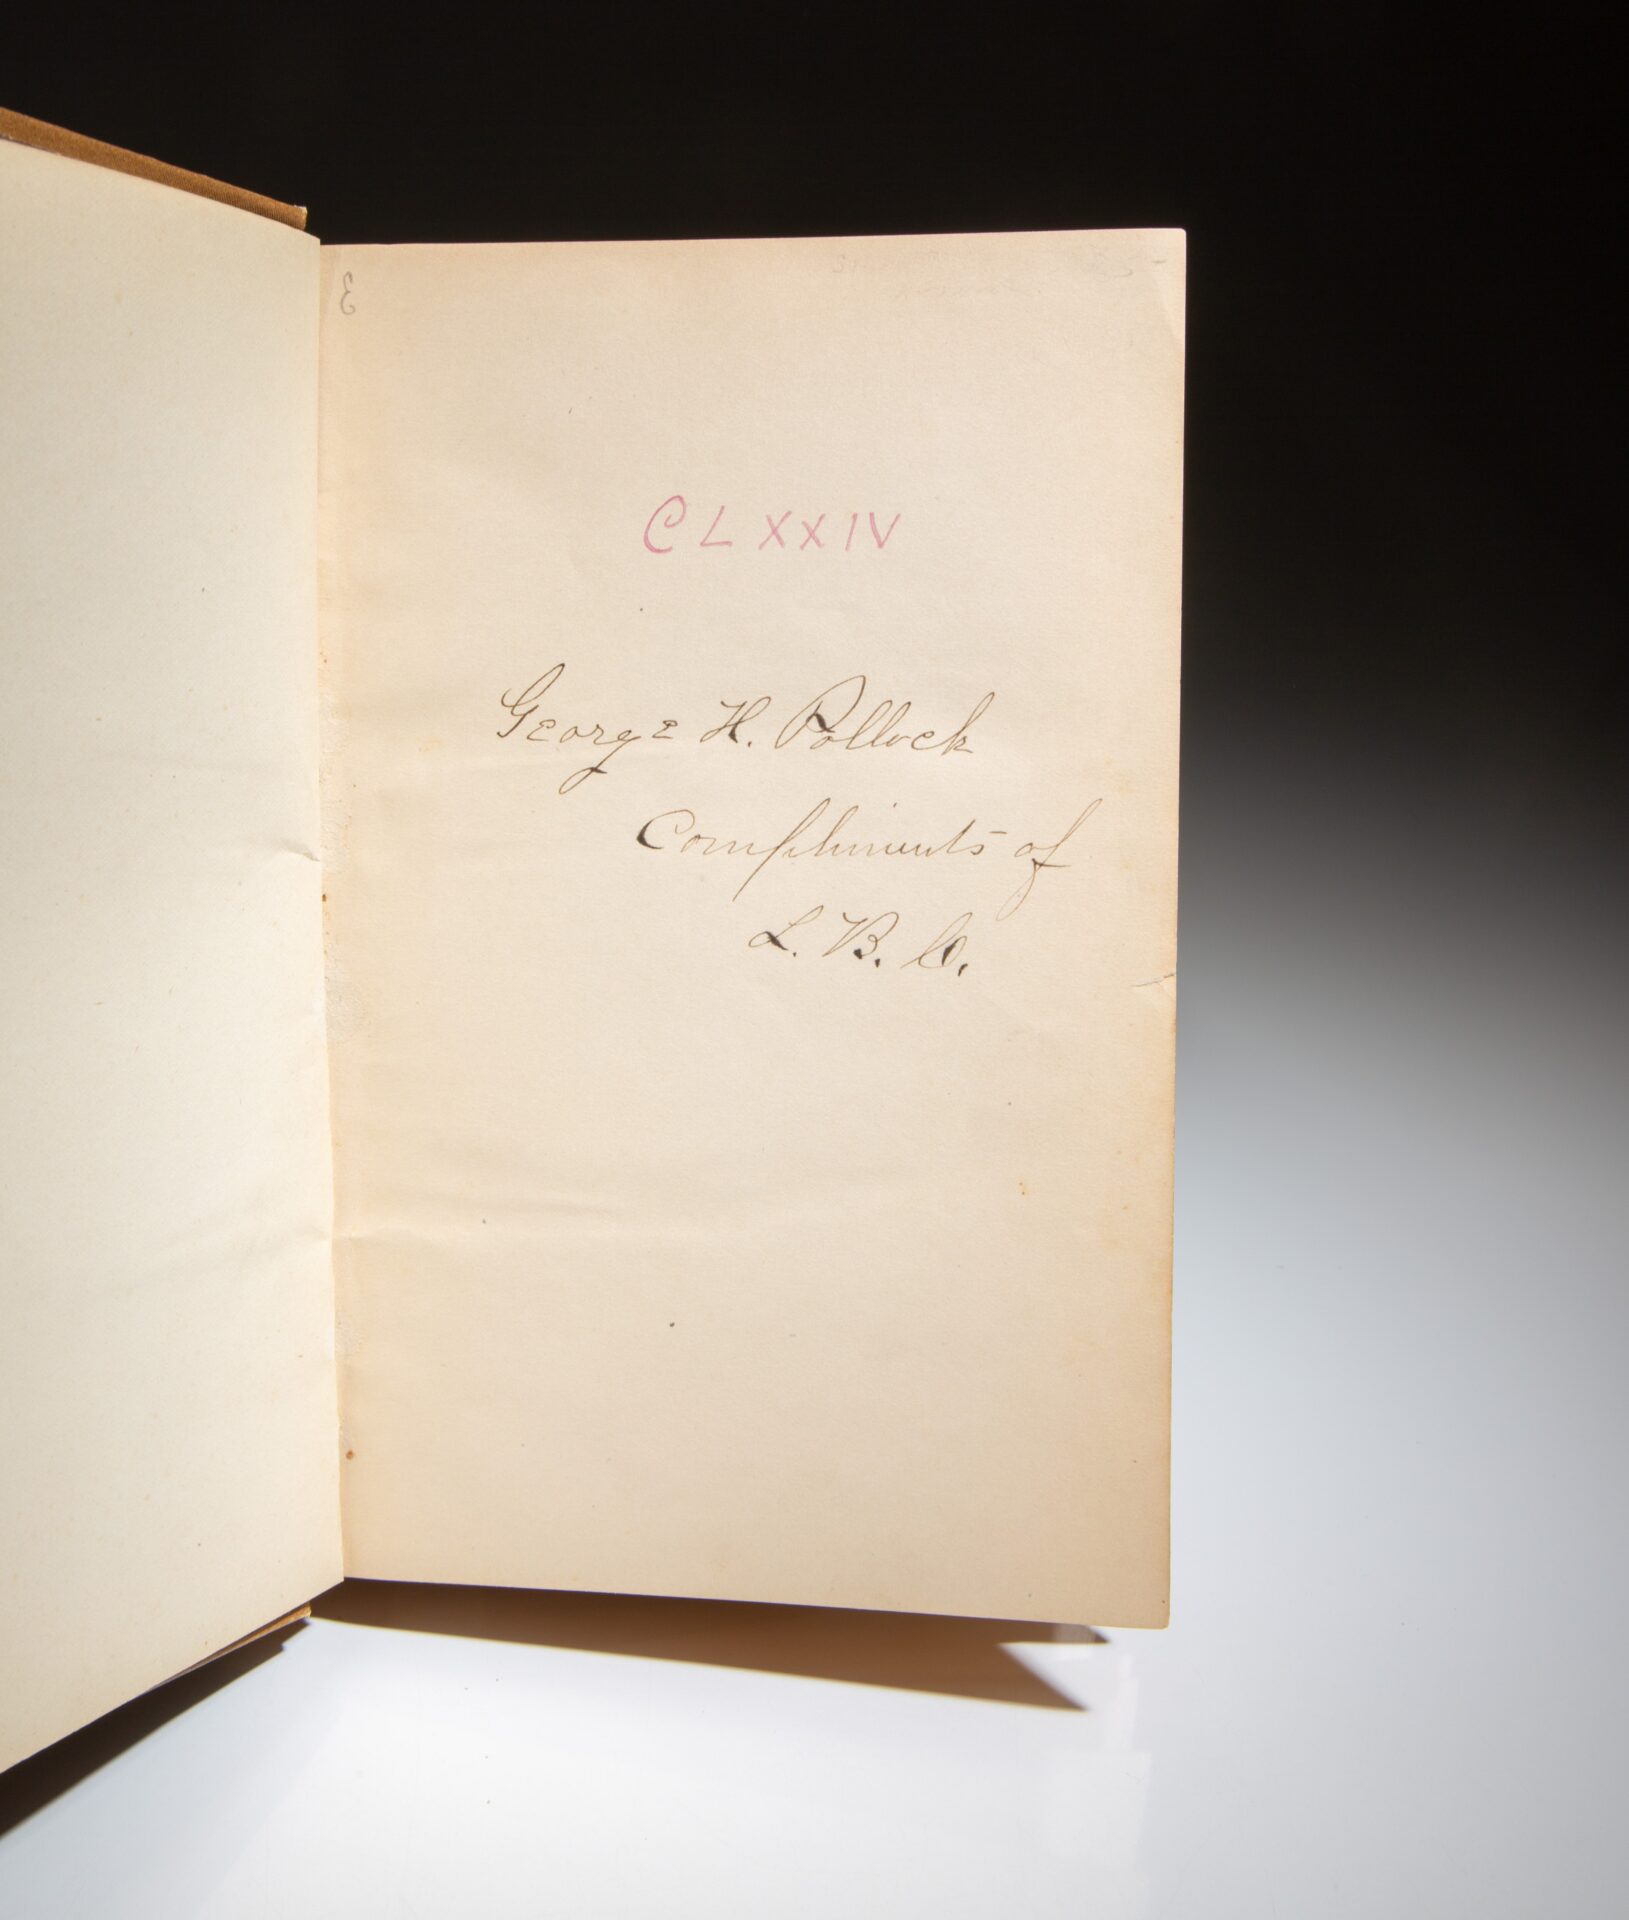 CLXXIV
George H. Pollock
Compliments of
L. B. C.